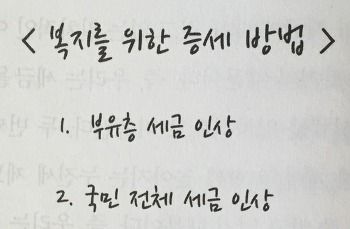 < 복지를 위한 증세 방법 >
1. 부유층 세금 인상
2. 국민 전체 세금 인상